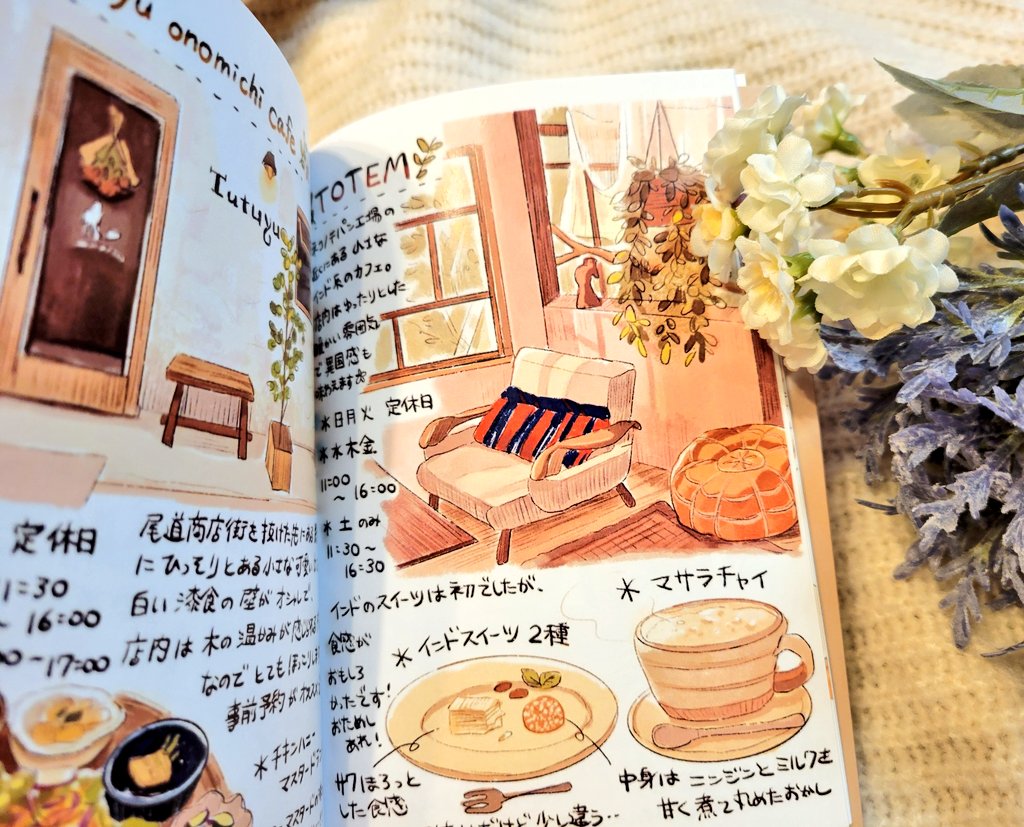 yu onomichi cafe
Tutuyu
定休日
11:30
~ 16:00
00~17:00
尾道商店街を抜けた先にある
にひっそりとある小さな可愛い
白い漆食の壁がオシャレで、
店内は木の温かみが感じられる
なのでとてもほっこりし
事前予約がオススメ
*チキンハニー
マスタード
マスタードの
TOTEM
ネコノテパン工場の
近くにある小さな
インド系のカフェ。
店内はゆったりとした
温かい雰囲気
で異国感も
味わえます☆
*日月火 定休日
*水木金
11:00
~ 16:00
*土のみ
11:30~
16:30
インドのスイーツは初でしたが、
食感が
おもしろ
かったです!
おためし
あれ!
*インドスイーツ 2種
サクほろっと
した食感
少し違う‥
*マサラチャイ
中身はニンジンとミルクを
甘く煮て丸めたおかし